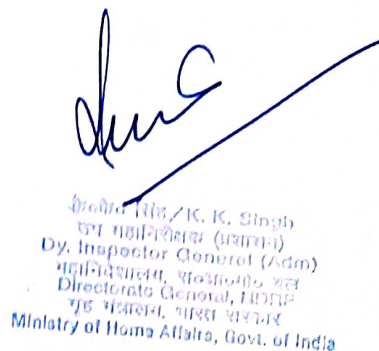 के०के० सिंह/K. K. Singh
उप महानिरीक्षक (प्रशासन)
Dy. Inspector General (Adm)
महानिदेशालय,
Directorate General, NDRF
गृह मंत्रालय, भारत सरकार
Ministry of Home Affairs, Govt. of India